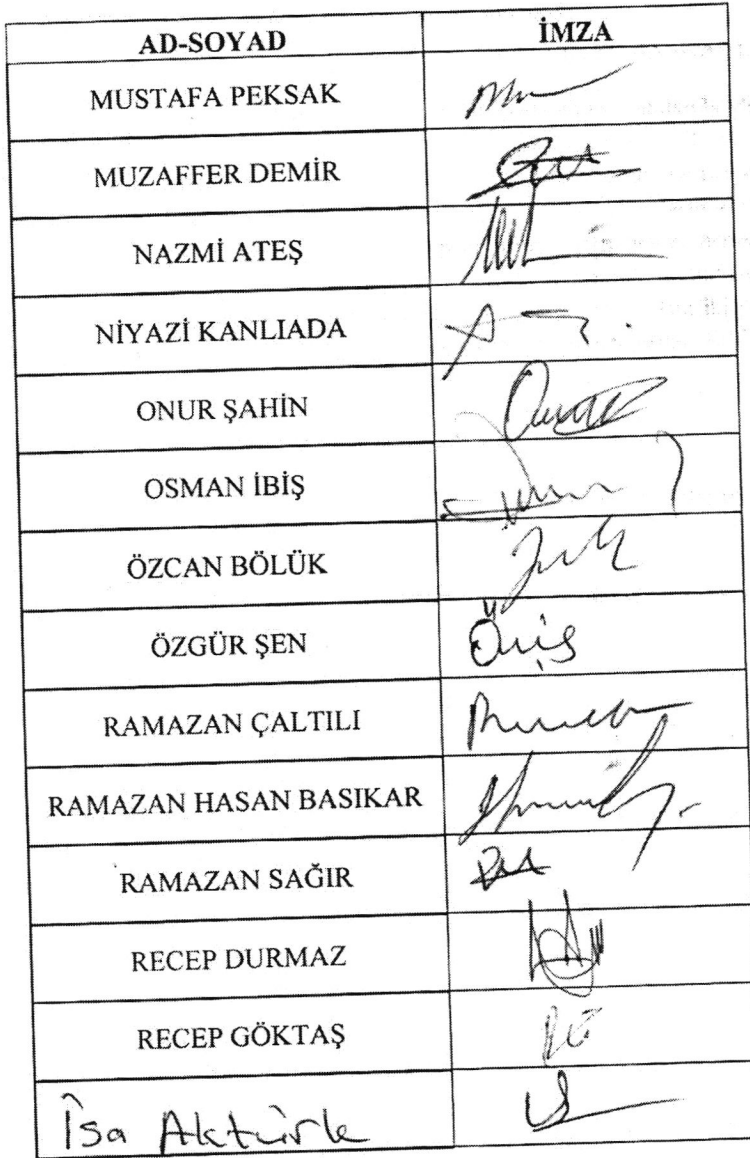 AD-SOYAD İMZA
MUSTAFA PEKSAK
MUZAFFER DEMİR
NAZMİ ATEŞ
NİYAZİ KANLIADA
ONUR ŞAHİN
OSMAN İBİŞ
ÖZCAN BÖLÜK
ÖZGÜR ŞEN
RAMAZAN ÇALTILI
RAMAZAN HASAN BASIKAR
RAMAZAN SAĞIR
RECEP DURMAZ
RECEP GÖKTAŞ
İsa Aktürk